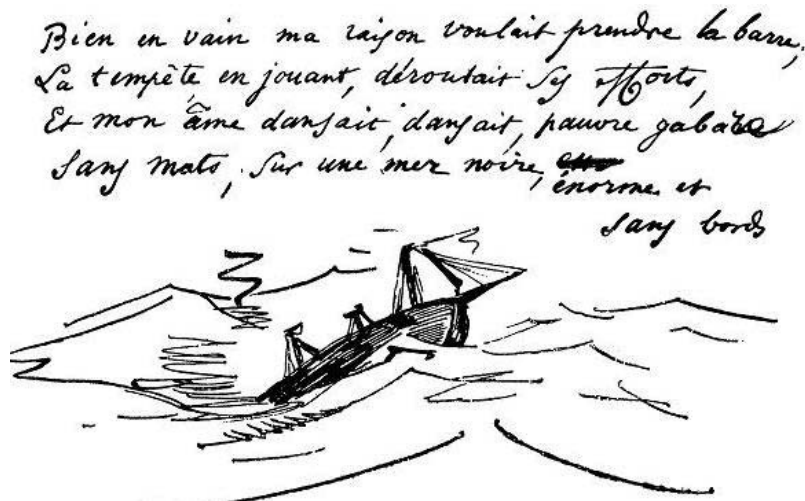 Bien en vain ma raison voulait prendre la barre,
La tempête, en jouant, déroutait ses efforts,
Et mon âme dansait, dansait, pauvre gabare
Sans mats, sur une mer noire, énorme et
sans bords